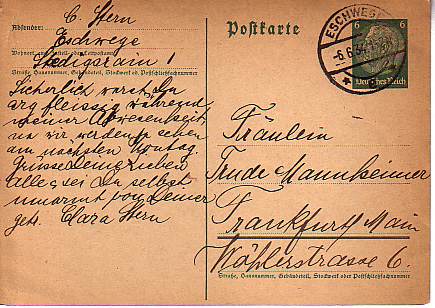 Absender:
C. Stern
Eschwege
Wohnort, auch Zustell- oder Leitpostamt
1
Straße, Hausnummer, Gebäudeteil, Stockwerk od. Postschließfachnummer
Sicherlich warst Du
arg fleissig während
meiner Abwesenheit
na wir werden ja sehen
am nächsten Sonntag.
Grüsse Deine Lieben
alle, sei Du selbst
umarmt von Deiner
gets. Clara Stern
Postkarte
ESCHWEGE
-6.6.34
6
6
Deutsches Reich
Fräulein
Trude Mannheimer
Frankfurt/Main
Wöhlerstrasse 6.
Straße, Hausnummer, Gebäudeteil, Stockwerk oder Postschließfachnummer